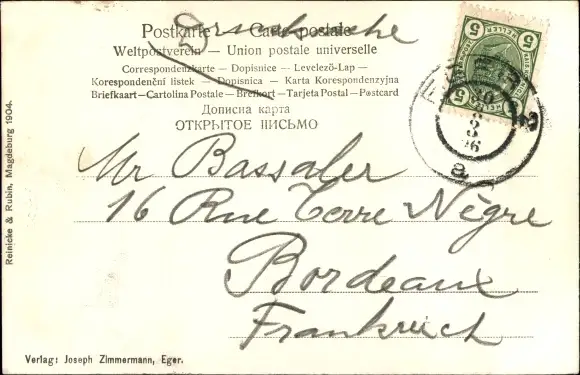 Postkarte — Carte postale
Drucksache
Weltpostverein — Union postale universelle
Correspondenzkarte — Dopisnice — Levelező-Lap —
Korespondenční lístek — Dopisnica — Karta Korespondenzyjna
Briefkaart — Cartolina Postale — Brefkort — Tarjeta Postal — Postcard
Дописна карта
ОТКРЫТОЕ ПИСЬМО
5 HELLER 5
5 5
3
06
a
Mr Bassaler
16 Rue Terre Nègre
Bordeaux
Frankreich
Reinicke & Rubin, Magdeburg 1904.
Verlag: Joseph Zimmermann, Eger.